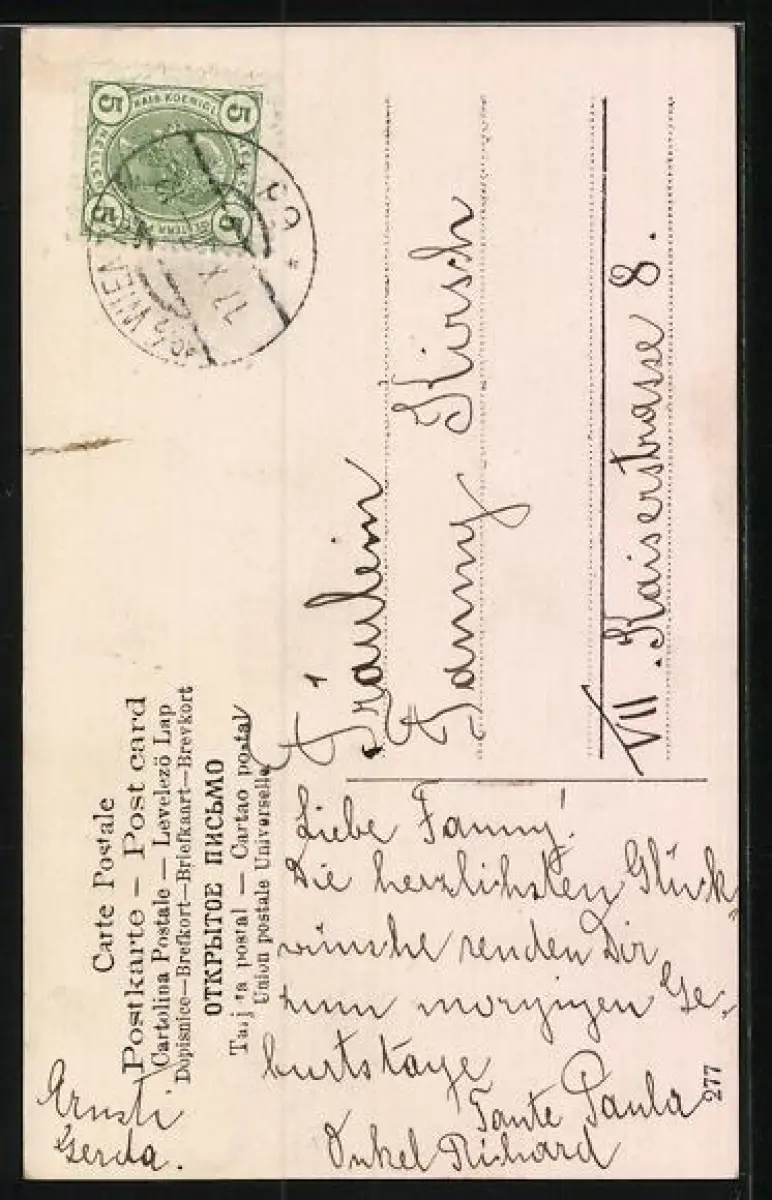 5
5
5
5
KAIS. KOENIGL.
HELLER
WIEN
17 X
Carte Postale
Postkarte — Post card
Cartolina Postale — Levelező Lap
Dopisnice—Brefkort—Briefkaart—Brevkort
ОТКРЫТОЕ ПИСЬМО
postal — Cartao postal
Union postale Universelle
Fräulein
Fanny Hirsch
VII. Kaiserstrasse 8.
Liebe Fanny!
Die herzlichsten Glück-
wünsche senden Dir
zum morgigen Ge-
burtstage
Tante Paula
Onkel Richard
Ernsti
Gerda.
277